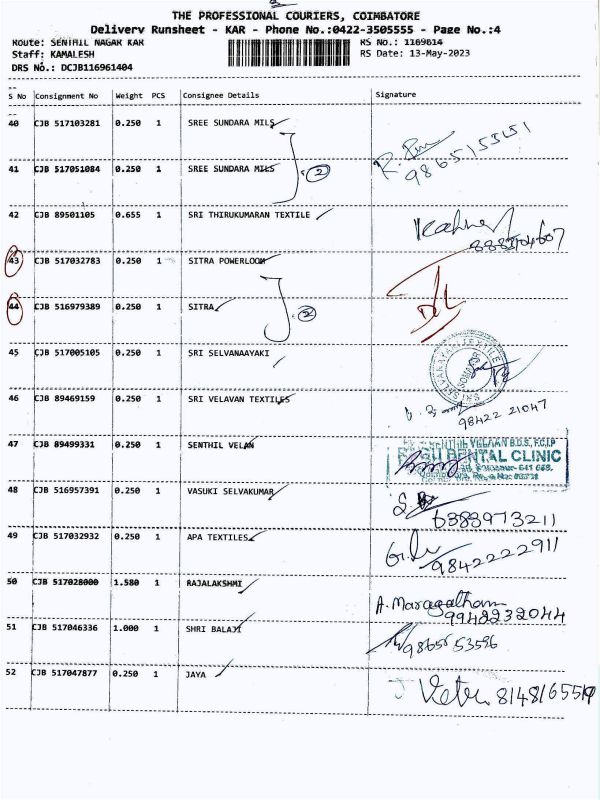 THE PROFESSIONAL COURIERS, COIMBATORE
Delivery Runsheet - KAR - Phone No.:0422-3505555 - Page No.:4
Route: SENTHIL NAGAR KAR
RS No.: 1169614
Staff: KAMALESH
RS Date: 13-May-2023
DRS No.: DCJB116961404
S No Consignment No Weight PCS Consignee Details Signature
40 CJB 517103281 0.250 1 SREE SUNDARA MILS
41 CJB 517051084 0.250 1 SREE SUNDARA MILS 2
42 CJB 89501105 0.655 1 SRI THIRUKUMARAN TEXTILE
43 CJB 517032783 0.250 1 SITRA POWERLOOM
44 CJB 516979389 0.250 1 SITRA 2
45 CJB 517005105 0.250 1 SRI SELVANAAYAKI
46 CJB 89469159 0.250 1 SRI VELAVAN TEXTILES 98422 21047
47 CJB 89499331 0.250 1 SENTHIL VELAN DENTAL CLINIC
48 CJB 516957391 0.250 1 VASUKI SELVAKUMAR 6383973211
49 CJB 517032932 0.250 1 APA TEXTILES 9842222911
50 CJB 517028000 1.580 1 RAJALAKSHMI A. Maragatham 9942232044
51 CJB 517046336 1.000 1 SHRI BALAJI 98655 53596
52 CJB 517047877 0.250 1 JAYA